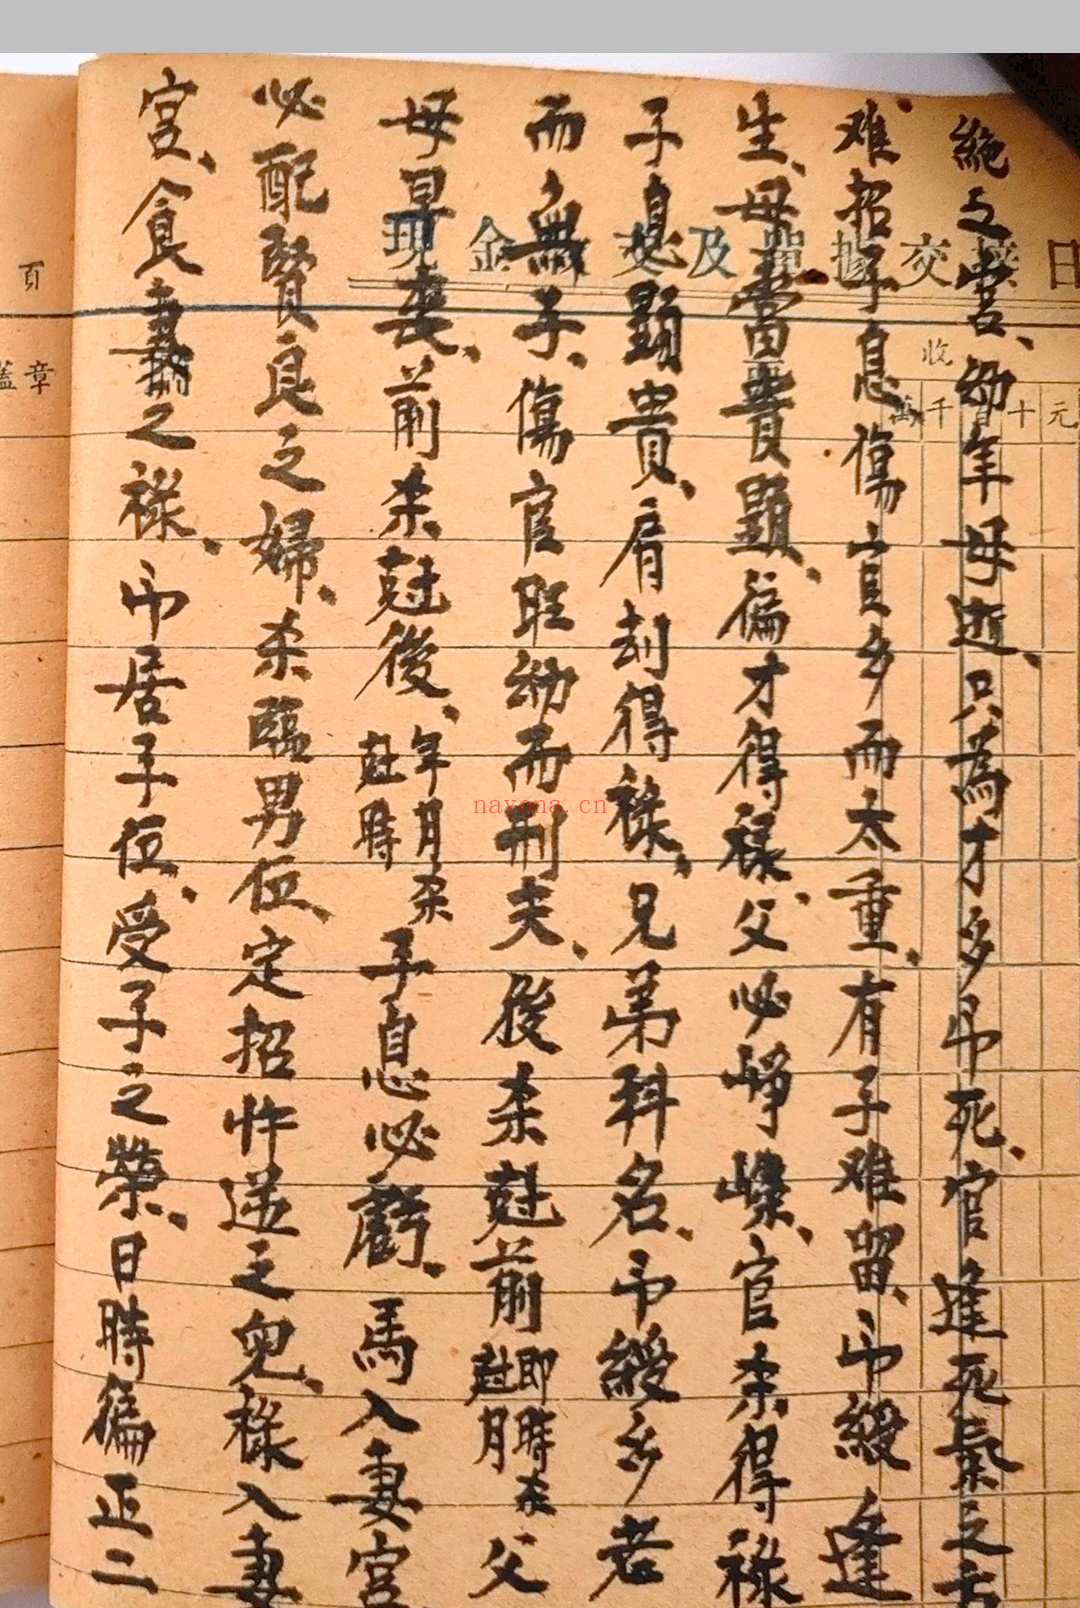 絶之宮、幼年母逝、只為才多印死、官逢死氣之
难招子息傷官多而太重、有子难留、印綬逢
生、母當貴顯、偏才得祿、父必崢嶸、官杀得祿
子息顕貴、肩刦得祿、兄弟科名、印綬多者
而無子、傷官旺幼而刑夫、後杀尅前即時杀尅月父
母早喪、前杀尅後、年月杀尅時子息必虧、馬入妻宮
必配賢良之婦、杀臨男位、定招忤逆之兒、祿入妻
宮、食妻之祿、印居子位、受子之榮、日時偏正二
現金及單據交接日
收
萬千百十元
頁
蓋章
nayona.cn